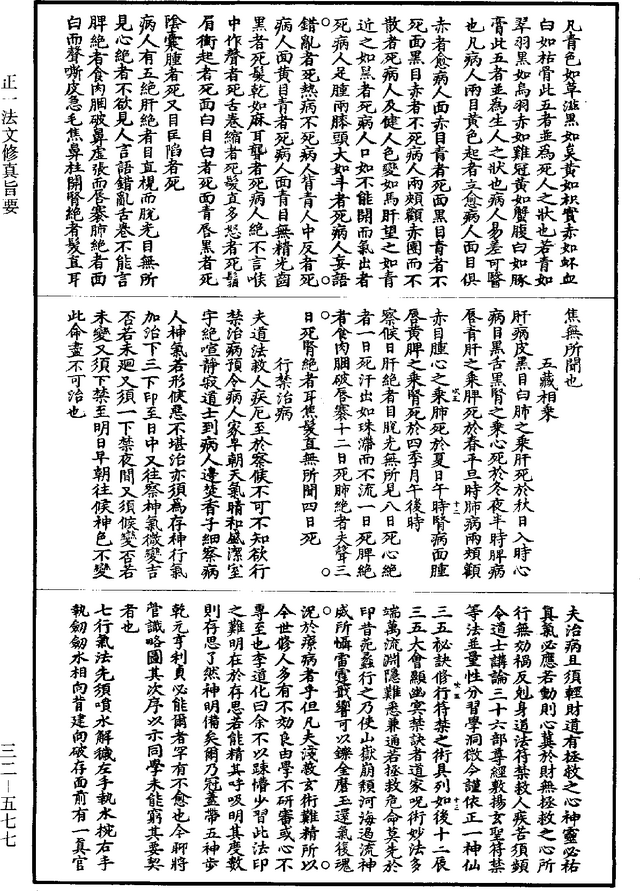 凡青色如草滋黑如炱黄如枳實赤如衃血
白如枯骨此五者並為死人之狀也若青如
翠羽黑如烏羽赤如雞冠黄如蟹腹白如豚
膏此五者並為生人之狀也病人易差可醫
也凡病人兩目黄色起者立愈病人面目俱
赤者愈病人面赤目青者死面黑目青者不
死面黑目赤者不死病人兩頰顴赤團而不
散者死病人及健人色變如馬肝望之如青
近之如黑者死病人口如不能開而氣出者
死病人足腫兩膝頭大如斗者死病人妄語
錯亂者死熱病不死病人背青人中反者死
病人面黄目青者死病人面青目無精光齒
黑者死髮乾如麻耳聾者死病人絶不言㑋
中作聲者死舌卷縮者死髮直多怒者死鬚
眉衝起者死面白目白者死面青唇黑者死
陰囊腫者死又目匡陷者死
病人有五絶肝絶者目直視而脫光目無所
見心絶者不欲見人言語錯亂舌卷不能言
脾絶者食肉䐃破鼻虚張而唇褰肺絶者面
白而聲嘶皮急毛焦鼻柱開腎絶者髮直耳
焦無所聞也
五藏相乘
肝病皮黑目白肺之乘肝死於秋日入時心
病目黑舌黑腎之乘心死於冬夜半時脾病
唇青肝之乘脾死於春平旦時肺病兩頰顴
赤目腫心之乘肺死於夏日午時腎病面腫
唇黄脾之乘腎死於四季月午後時
察候日肝絶者目脫光無所見八日死心絶
者一日死汗出如珠滯而不流一日死脾絶
者食肉䐃破唇褰十二日死肺絶者失聲三
日死腎絶者耳焦髮直無所聞四日死
行禁治病
夫道法救人疾厄至於察候不可不知欲行
禁治病預令病人家早朝天氣晴和盛潔室
宇絶喧静寂道士到病人邊焚香子細察病
人神氣若形候惡不堪治亦須為存神行氣
加治下三下印至日中又往察神氣微變吉
否若未廻又須一下禁夜間又須候變否若
未變又須下禁至明日早朝往候神色不變
此命盡不可治也
夫治病且須輕財道有拯救之心神靈必祐
真氣必應若動則心冀於財無拯救之心所
行無効禍反剋身道法符禁救人疾苦須頻
令道士講論三十六部尊經敷揚玄聖符禁
等法並量性分習學洞微今謹依正一神仙
三五祕訣修行符禁之術具列如後十二辰
三五大會顯幽冥禁訣者道家呪術妙法多
端萬流淵隱難悉兼通若拯救危命莫先於
印昔范蠡行之乃使山嶽崩頽河海過流神
威所懾雷霆戢響可以鑠金磨玉還氣復魂
況於療病者乎但凡夫淺教玄術難精所以
今世修人多有不効良由學不研審或心不
專至也李道化曰余不以踈懵少習此法印
之難明在於存思若能精其呼吸明其度數
則存思了然神明備矣爾乃冠蓋帶五神步
乾元亨利貞必能爾者罕有不愈也今聊將
管識略圖其次序以示同學未能窮其要契
者也
七行氣法先須噴水解穢左手執水椀右手
執劒劒水相向背建向破存面前有一真官
正一法文修真旨要
三二—五七七